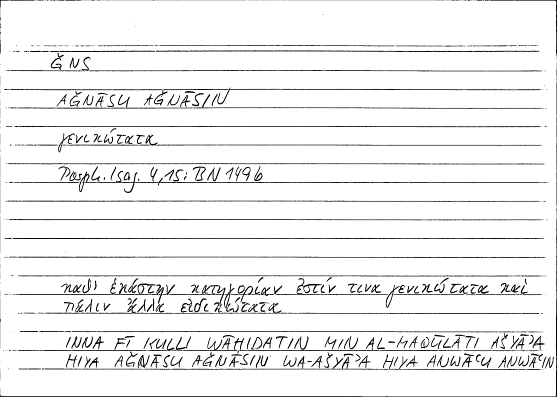 ǦNS
AǦNĀSU AǦNĀSIN
γενικώτατα
Porph. Isag. 4,15: BN 149b
καθ' ἑκάστην κατηγορίαν ἐστίν τινα γενικώτατα καὶ
πάλιν ἄλλα εἰδικώτατα
INNA FĪ KULLI WĀḤIDATIN MIN AL-MAQŪLĀTI AŠYĀʾA
HIYA AǦNĀSU AǦNĀSIN WA-AŠYĀʾA HIYA ANWĀʿU ANWĀʿIN